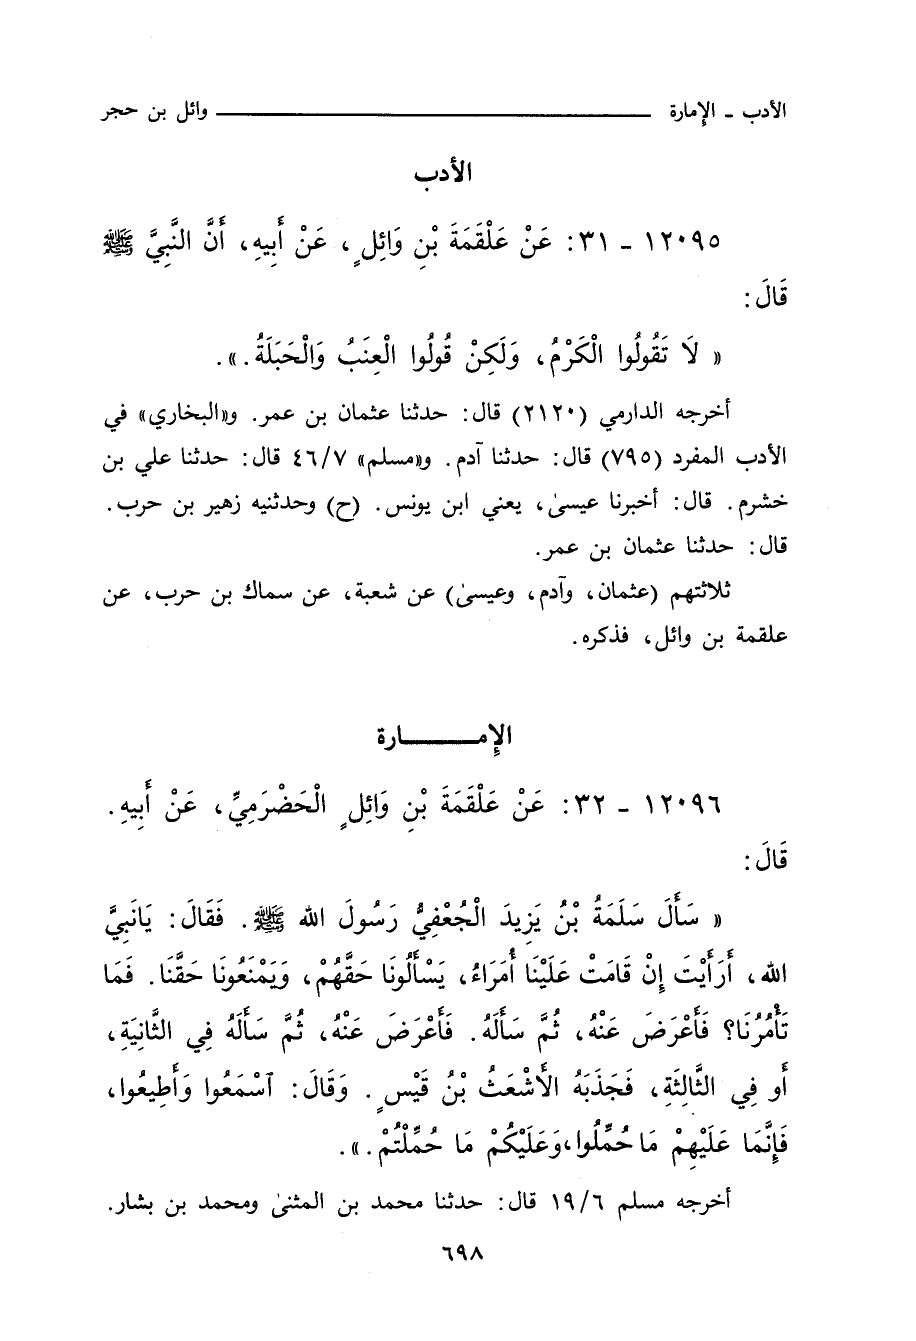 الأدب - الإمارة ــــــــ وائل بن حجر
الأدب
١٢٠٩٥ - ٣١: عَنْ عَلْقَمَةَ بْنِ وَائِلٍ، عَنْ أَبِيهِ، أَنَّ النَّبِيَّ ﷺ
قَالَ:
« لَا تَقُولُوا الْكَرْمُ، وَلَكِنْ قُولُوا الْعِنَبُ وَالْحَبَلَةُ.».
أخرجه الدارمي (٢١٢٠) قال: حدثنا عثمان بن عمر. و«البخاري» في
الأدب المفرد (٧٩٥) قال: حدثنا آدم. و«مسلم» ٤٦/٧ قال: حدثنا علي بن
خشرم. قال: أخبرنا عيسىٰ، يعني ابن يونس. (ح) وحدثنيه زهير بن حرب.
قال: حدثنا عثمان بن عمر.
ثلاثتهم (عثمان، وآدم، وعيسىٰ) عن شعبة، عن سماك بن حرب، عن
علقمة بن وائل، فذكره.
الإمــــــــارة
١٢٠٩٦ - ٣٢: عَنْ عَلْقَمَةَ بْنِ وَائِلٍ الْحَضْرَمِيِّ، عَنْ أَبِيهِ.
قَالَ:
« سَأَلَ سَلَمَةُ بْنُ يَزِيدَ الْجُعْفِيُّ رَسُولَ الله ﷺ. فَقَالَ: يَانَبِيَّ
الله، أَرَأَيْتَ إِنْ قَامَتْ عَلَيْنَا أُمَرَاءُ، يَسْأَلُونَا حَقَّهُمْ، وَيَمْنَعُونَا حَقَّنَا. فَمَا
تَأْمُرُنَا؟ فَأَعْرَضَ عَنْهُ، ثُمَّ سَأَلَهُ. فَأَعْرَضَ عَنْهُ، ثُمَّ سَأَلَهُ فِي الثَّانِيَةِ،
أَو فِي الثَّالِثَةِ، فَجَذَبَهُ الْأَشْعَثُ بْنُ قَيْسٍ. وَقَالَ: ٱسْمَعُوا وَأَطِيعُوا،
فَإِنَّمَا عَلَيْهِمْ مَا حُمِّلُوا، وَعَلَيْكُمْ مَا حُمِّلْتُمْ.».
أخرجه مسلم ١٩/٦ قال: حدثنا محمد بن المثنىٰ ومحمد بن بشار.
٦٩٨